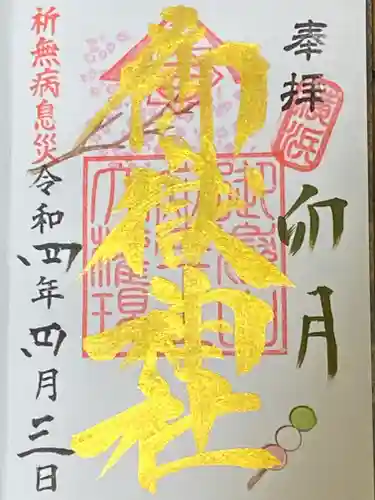 奉拝
横浜
卯月
御嶽神社
祈無病息災
令和四年四月三日